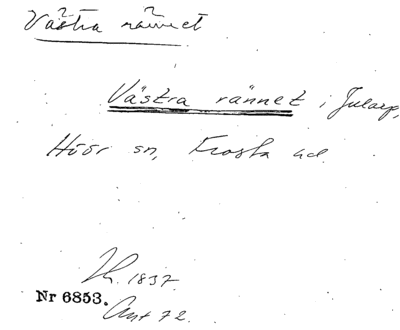 Västra rännet
Västra rännet i Jularp,
Höör sn, Frosta hd
1837.
Nr 6853.
Ant 72.